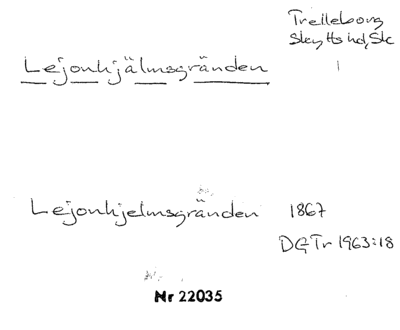 Trelleborg
Skytts hd, Sk
Lejonhjälmsgränden
1
Lejonhjelmsgränden 1867
DGTr 1963:18
Nr 22035